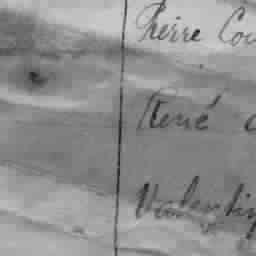 Pierre Cou
René
Valentin